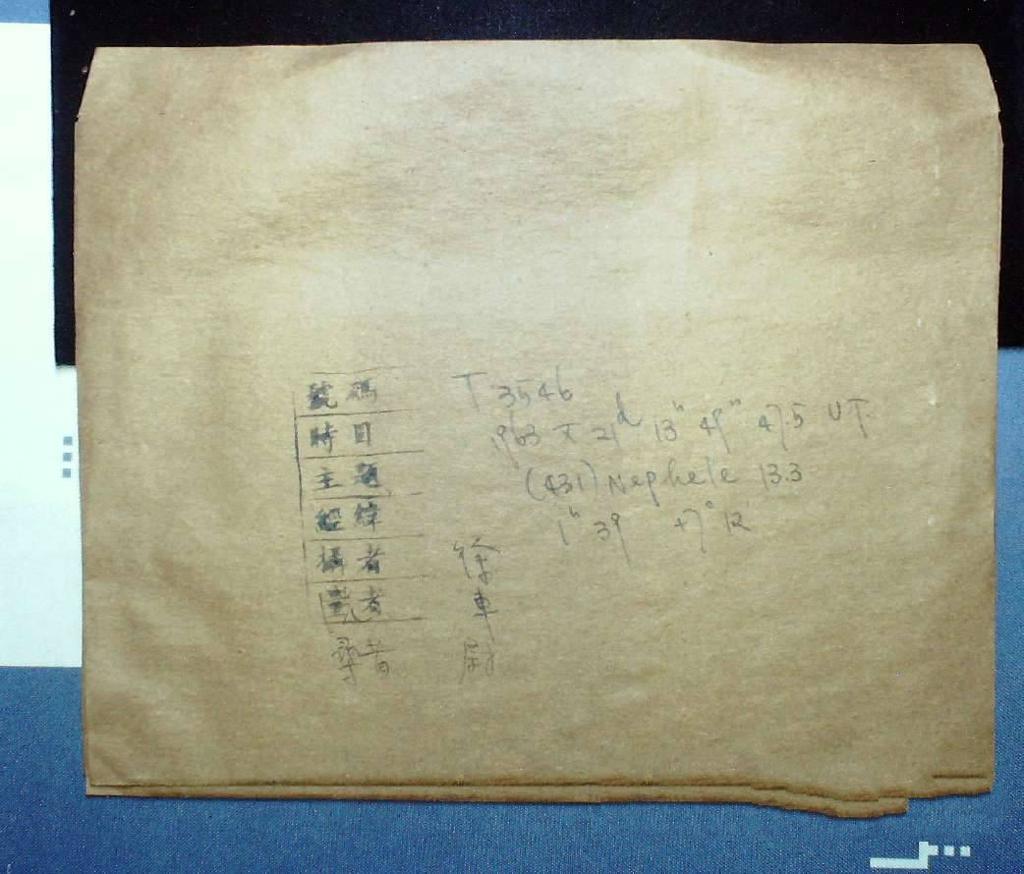 號碼 T 3546
時日 1963 X 21d 13h 49m 47.5 UT.
主題 (431) Nephele 13.3
經緯 1h 39 +7° 12'
攝者 徐
覽者 車
尋者 尉